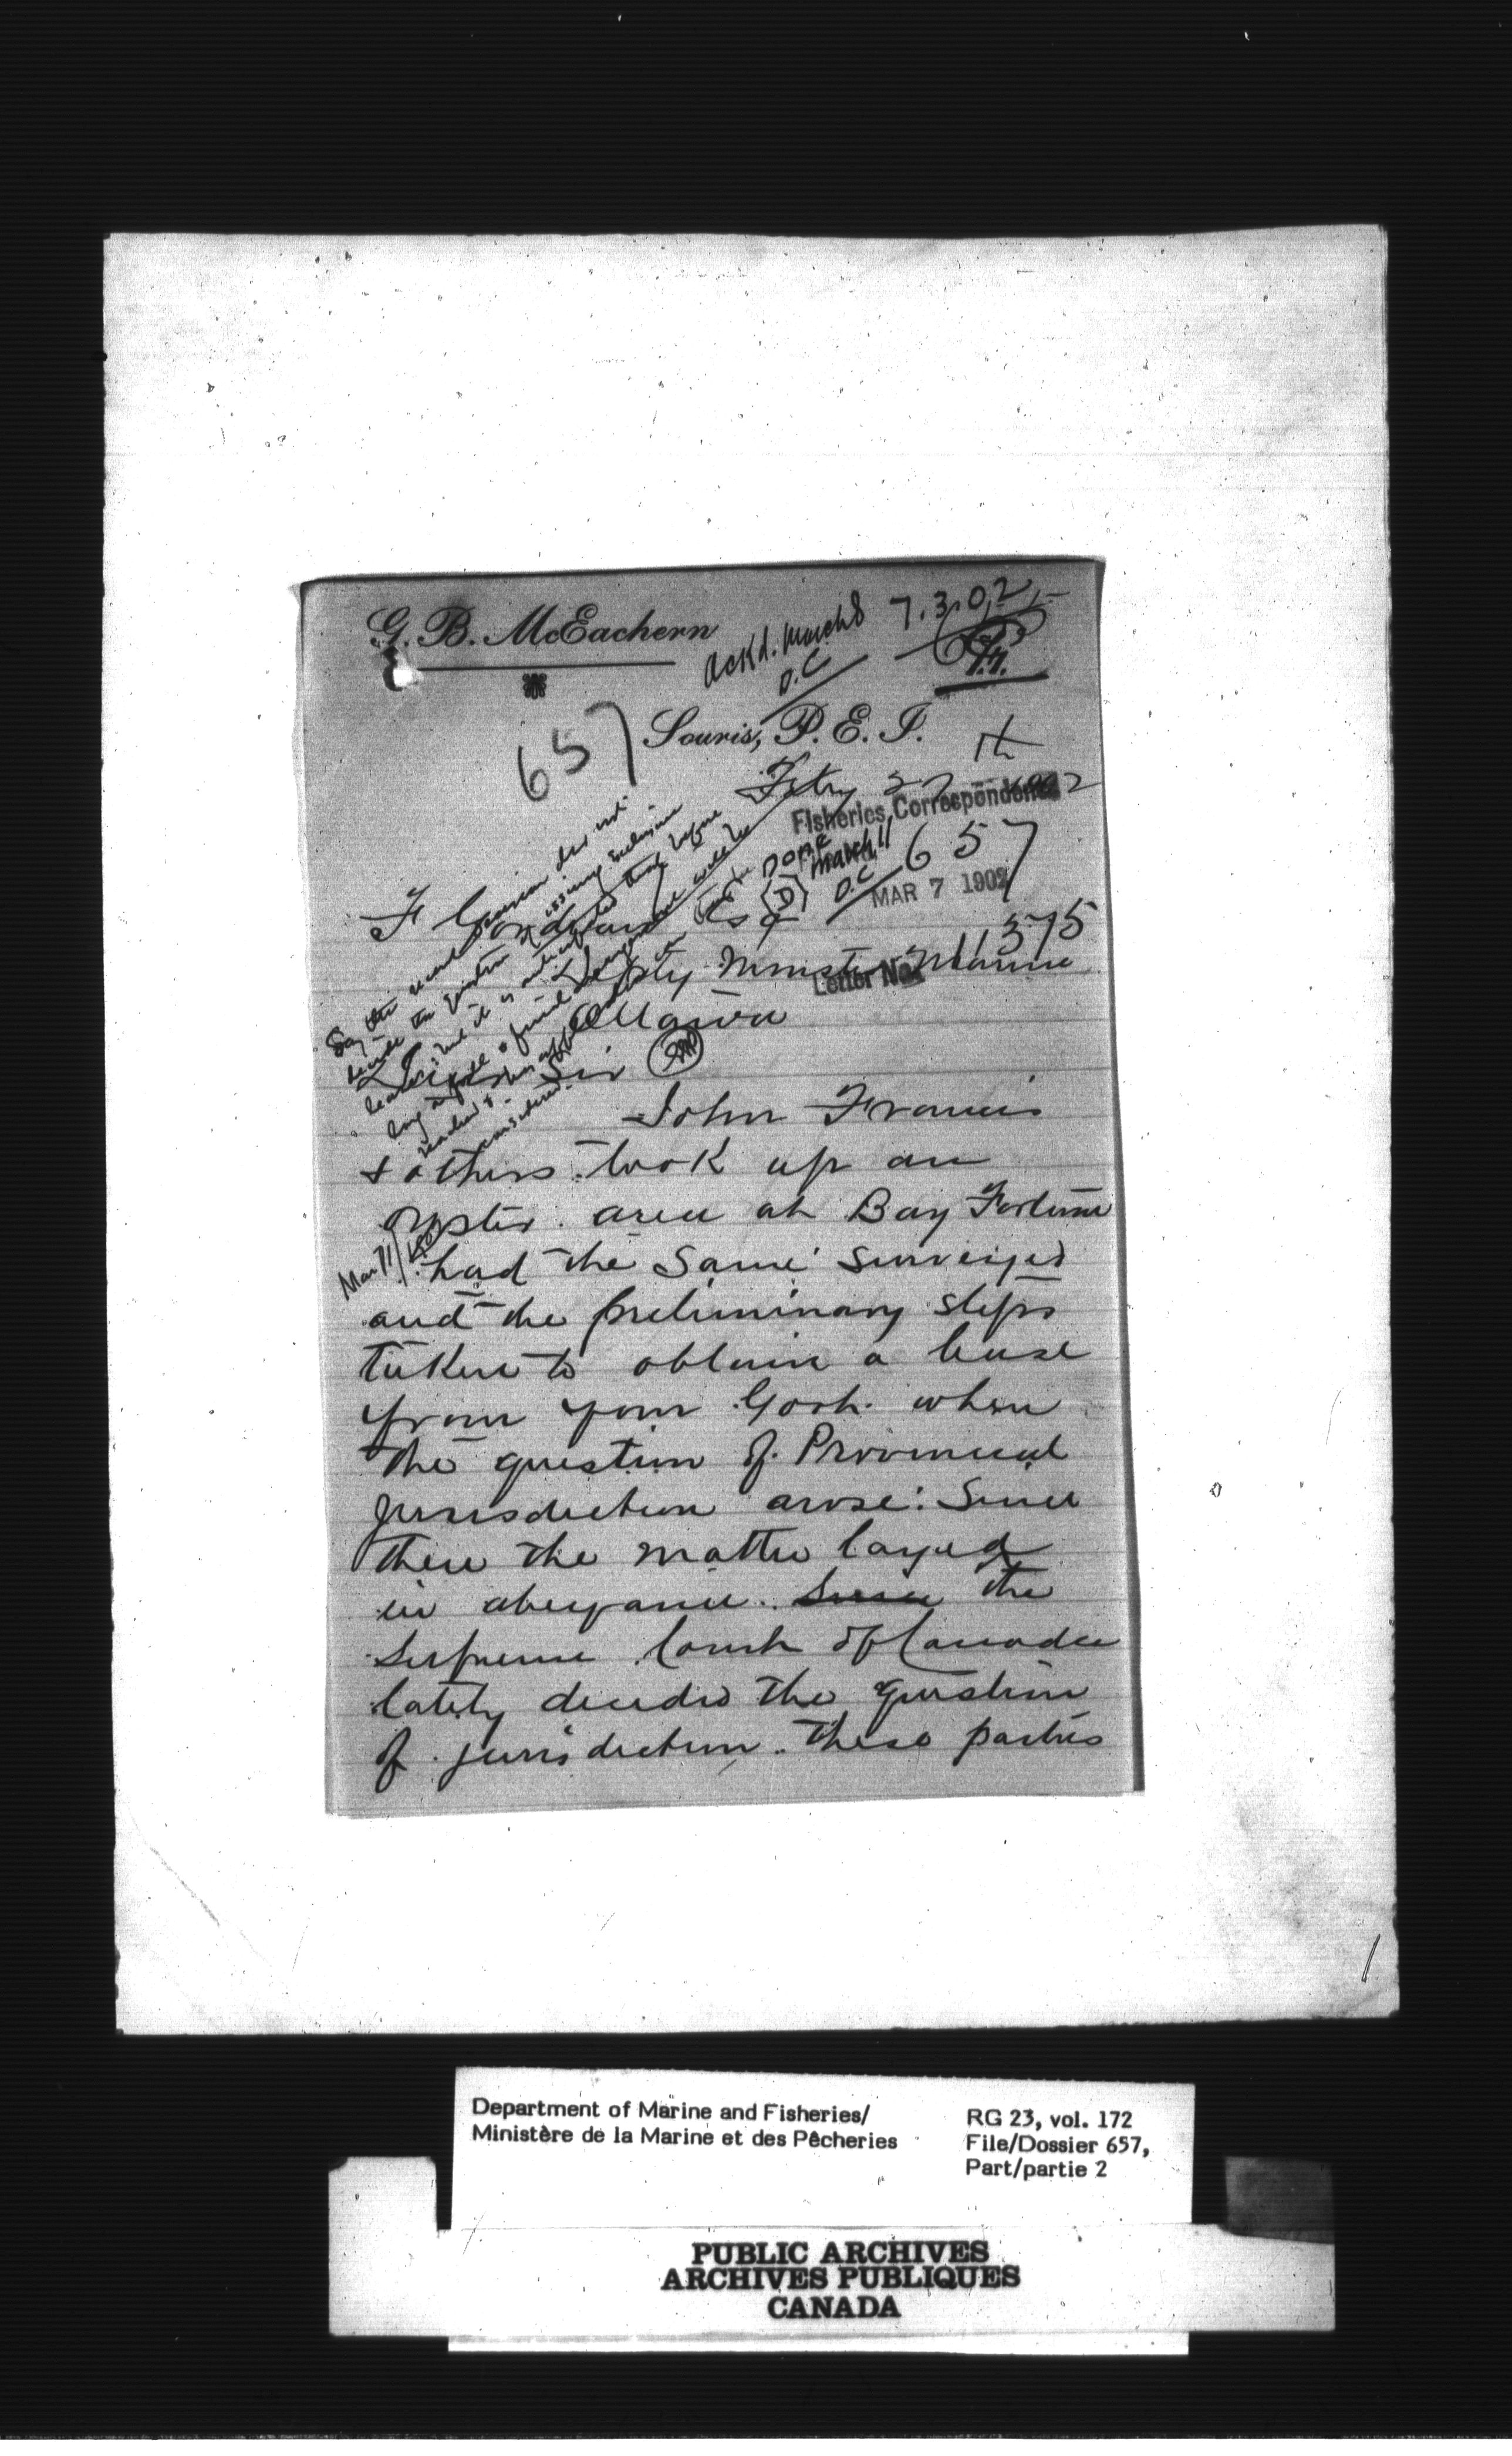 G. B. McEachern
Ackd. March 8 7.3.02
D.C
657
Souris, P. E. I.
Feby 27th 1902
Fisheries, Correspondence
657
MAR 7 1902
Done
March 11
D.C
11575
Letter No.
F Gourdeau Esq
Depty Minister Marine
Ottawa
Say the recent decision does not
decide the question of issuing exclusive
leases but it is anticipated that before
long a final arrangement will be
reached &
considered.
Dear Sir
John Francis
& others took up an
oyster area at Bay Fortune
Mar 11/02
had the same surveyed
and the preliminary steps
taken to obtain a lease
from your Govt. when
the question of Provincial
jurisdiction arose: Since
then the matter layed
in abeyance. Since the
Supreme Court of Canada
lately decided the question
of jurisdiction. These parties
1
Department of Marine and Fisheries/
Ministère de la Marine et des Pêcheries
RG 23, vol. 172
File/Dossier 657,
Part/partie 2
PUBLIC ARCHIVES
ARCHIVES PUBLIQUES
CANADA